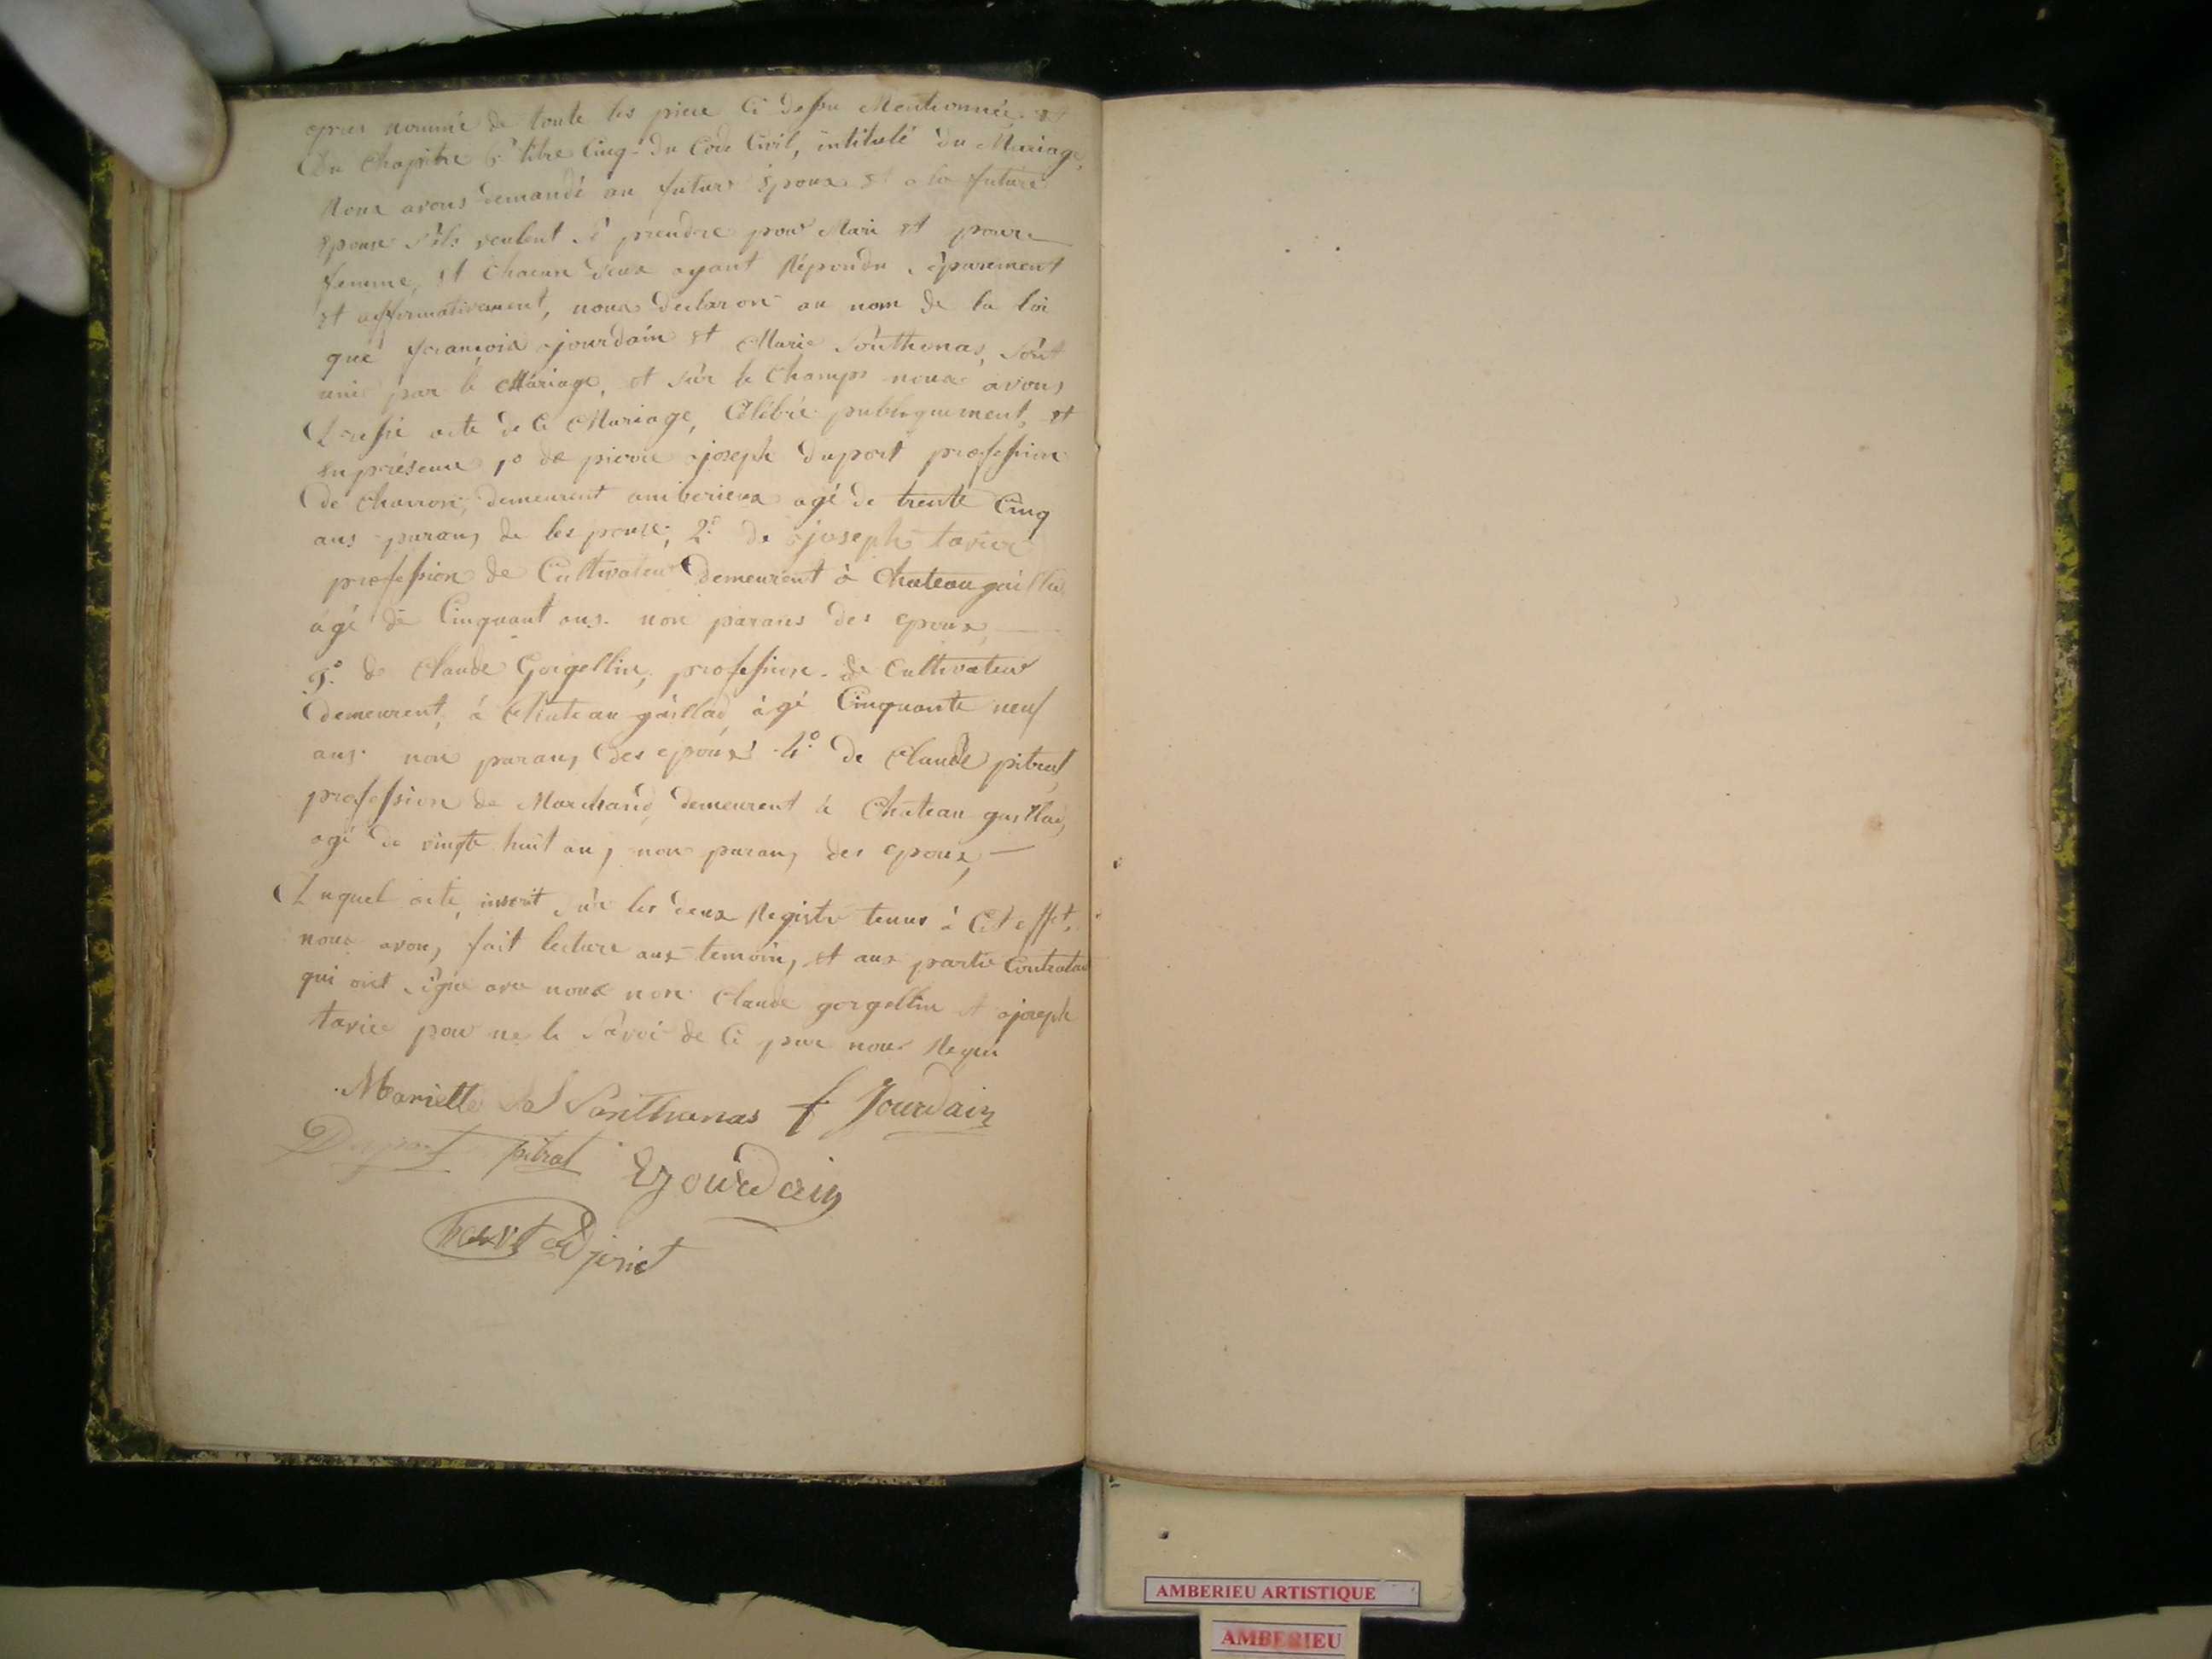 apres nommé de toute les piece Ci dessu Mentionnée, et
Du Chapitre 6e titre Cinq du Code Civil, intitulé du Mariage,
Nous avons demandé au futur Epoux et a la future
Epouse s'ils veulent se prendre pour Mari et pour
femme, et chacun deux ayant Répondu séparément
et affirmativement, nous declaron au nom de la loi
que francois jourdain et Marie Sonthonas, sont
unie par le Mariage, et sur le Champs nous avons
Dressé acte de Ce Mariage, Célébré publiquement, et
En présence 1o de pierre joseph duport profession
De charron, demeurent amberieux agé de trente Cinq
ans parans de les pouse; 2o de joseph tavier
profession de Cultivateur Demeurent à Chateau gaillad
agé de Cinquant ans. non parans des epoux,
3o de Claude Gorgellin, profession de Cultivateur
demeurent, à Chateau gaillad, agé Cinquante neuf
ans non parans des epoux 4o de Claude pitrat,
profession de Marchand, demeurent à Chateau gaillad,
agé de vingte huit ans, non parans des epoux,
Duquel acte, inscrit sur les deux Registre tenus à Cet effet,
nous avons fait lecture aux temoins, et aux partie Contratant
qui ont signé avec nous non Claude gorgellin et joseph
tavier pour ne le savoi de Ce par nous Requi
Mariette Sonthonas f Jourdain
Duport pitrat Jourdain
AMBERIEU ARTISTIQUE
AMBERIEU